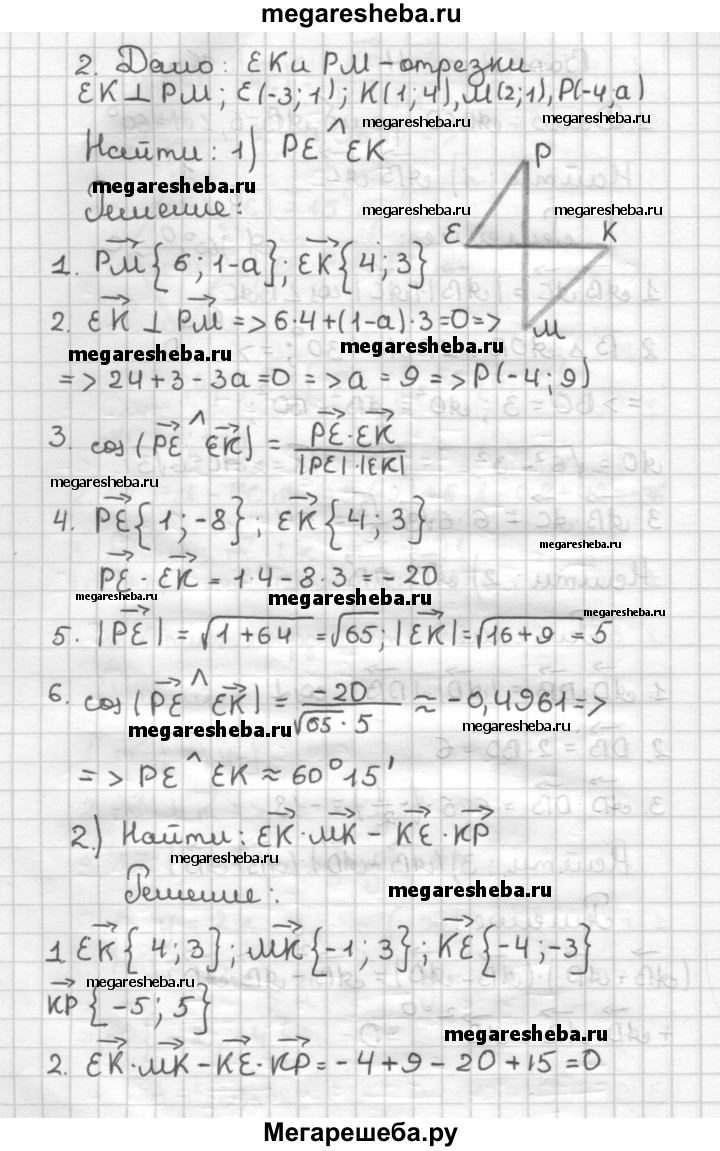 megaresheba.ru
2. Дано: EK и PM – отрезки
EK ⊥ PM; E(-3;1); K(1;4), M(2;1), P(-4;a)
megaresheba.ru megaresheba.ru
Найти: 1) PE ^ EK
megaresheba.ru
P
Решение:
megaresheba.ru megaresheba.ru
E K
1. PM{6; 1-a}; EK{4; 3}
2. EK ⊥ PM => 6·4+(1-a)·3=0 =>
M
megaresheba.ru megaresheba.ru
=> 24+3-3a=0 => a=9 => P(-4; 9)
3. cos(PE ^ EK) = PE·EK / |PE|·|EK|
megaresheba.ru
4. PE{1; -8}; EK{4; 3}
megaresheba.ru
PE · EK = 1·4 - 8·3 = -20
megaresheba.ru megaresheba.ru
megaresheba.ru
5. |PE| = √1+64 = √65; |EK| = √16+9 = 5
6. cos(PE ^ EK) = -20 / √65 · 5 ≈ -0,4961 =>
megaresheba.ru
=> PE ^ EK ≈ 60°15'
2) Найти: EK·MK - KE·KP
megaresheba.ru
Решение:
megaresheba.ru
1. EK{4; 3}; MK{-1; 3}; KE{-4; -3}
megaresheba.ru
KP{-5; 5}
megaresheba.ru
2. EK·MK - KE·KP = -4+9-20+15=0
Мегарешеба.ру